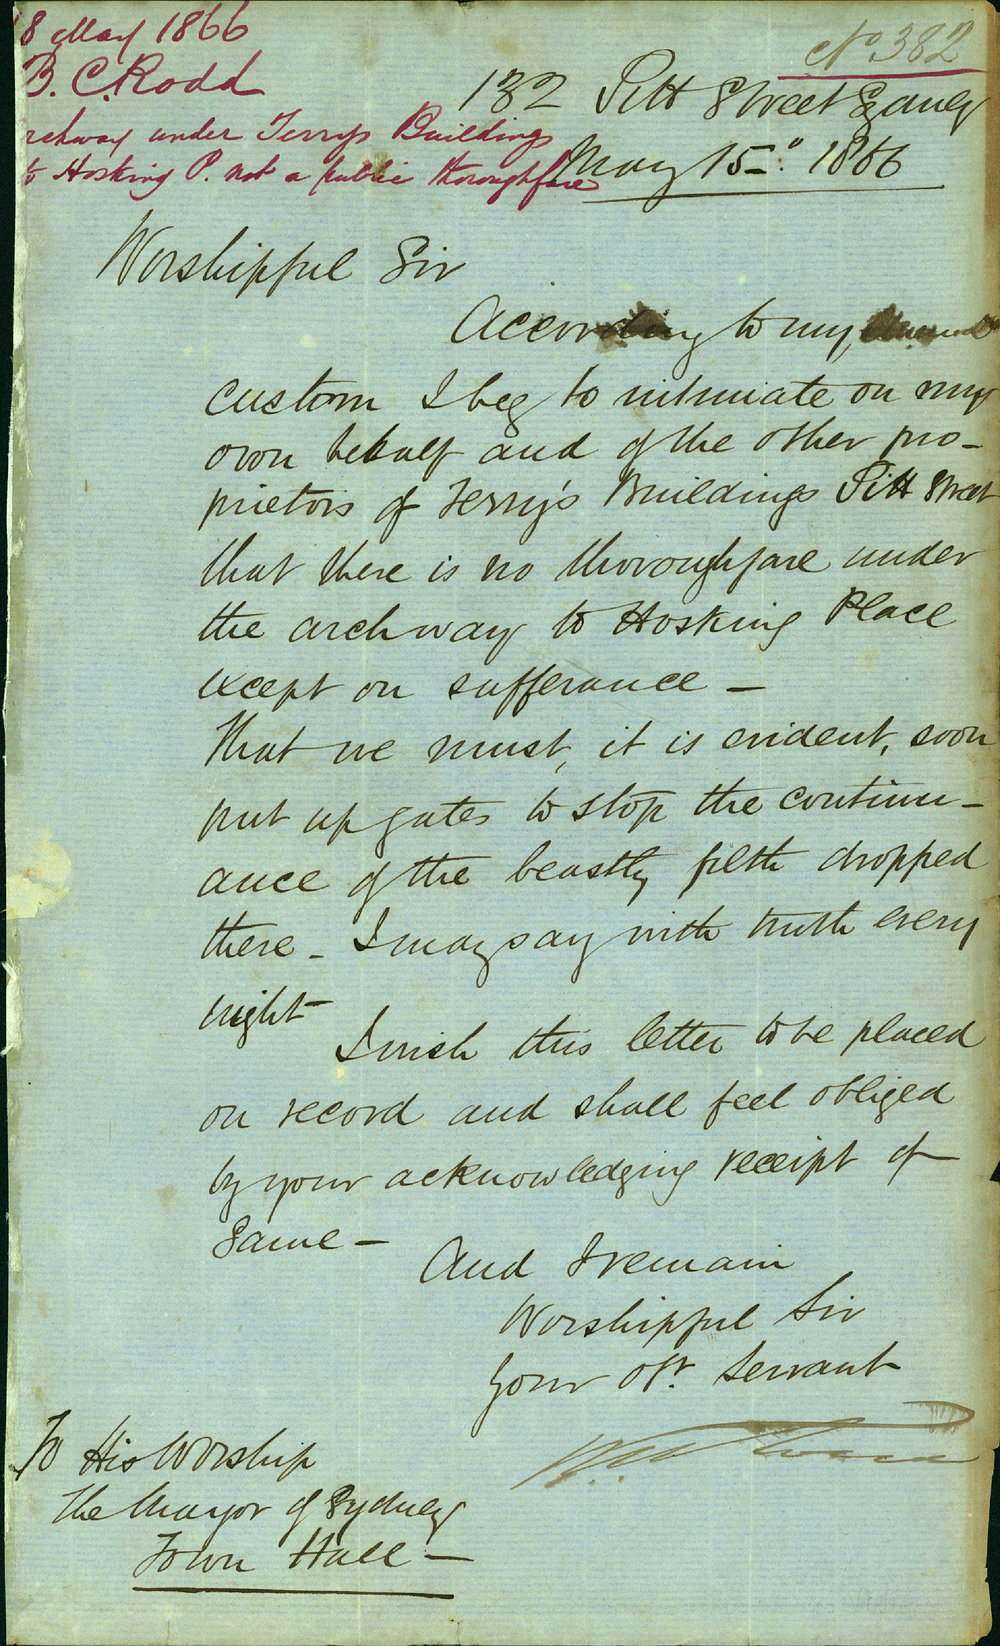 8 May 1866
B. C. Rodd
archway under Terry's Buildings
to Hosking P. not a public thoroughfare
No 382
132 Pitt Street Sydney
May 15th. 1866
Worshipful Sir
According to my annual
custom I beg to intimate on my
own behalf and of the other pro-
prietors of Terry's Buildings Pitt Street
that there is no thoroughfare under
the archway to Hosking Place
except on sufferance –
That we must, it is evident, soon
put up gates to stop the continu-
ance of the beastly filth dropped
there – I may say with truth every
night –
I wish this letter to be placed
on record and shall feel obliged
by your acknowledging receipt of
Same –
And I remain
Worshipful Sir
Your Obt. Servant
To His Worship
The Mayor of Sydney
Town Hall –